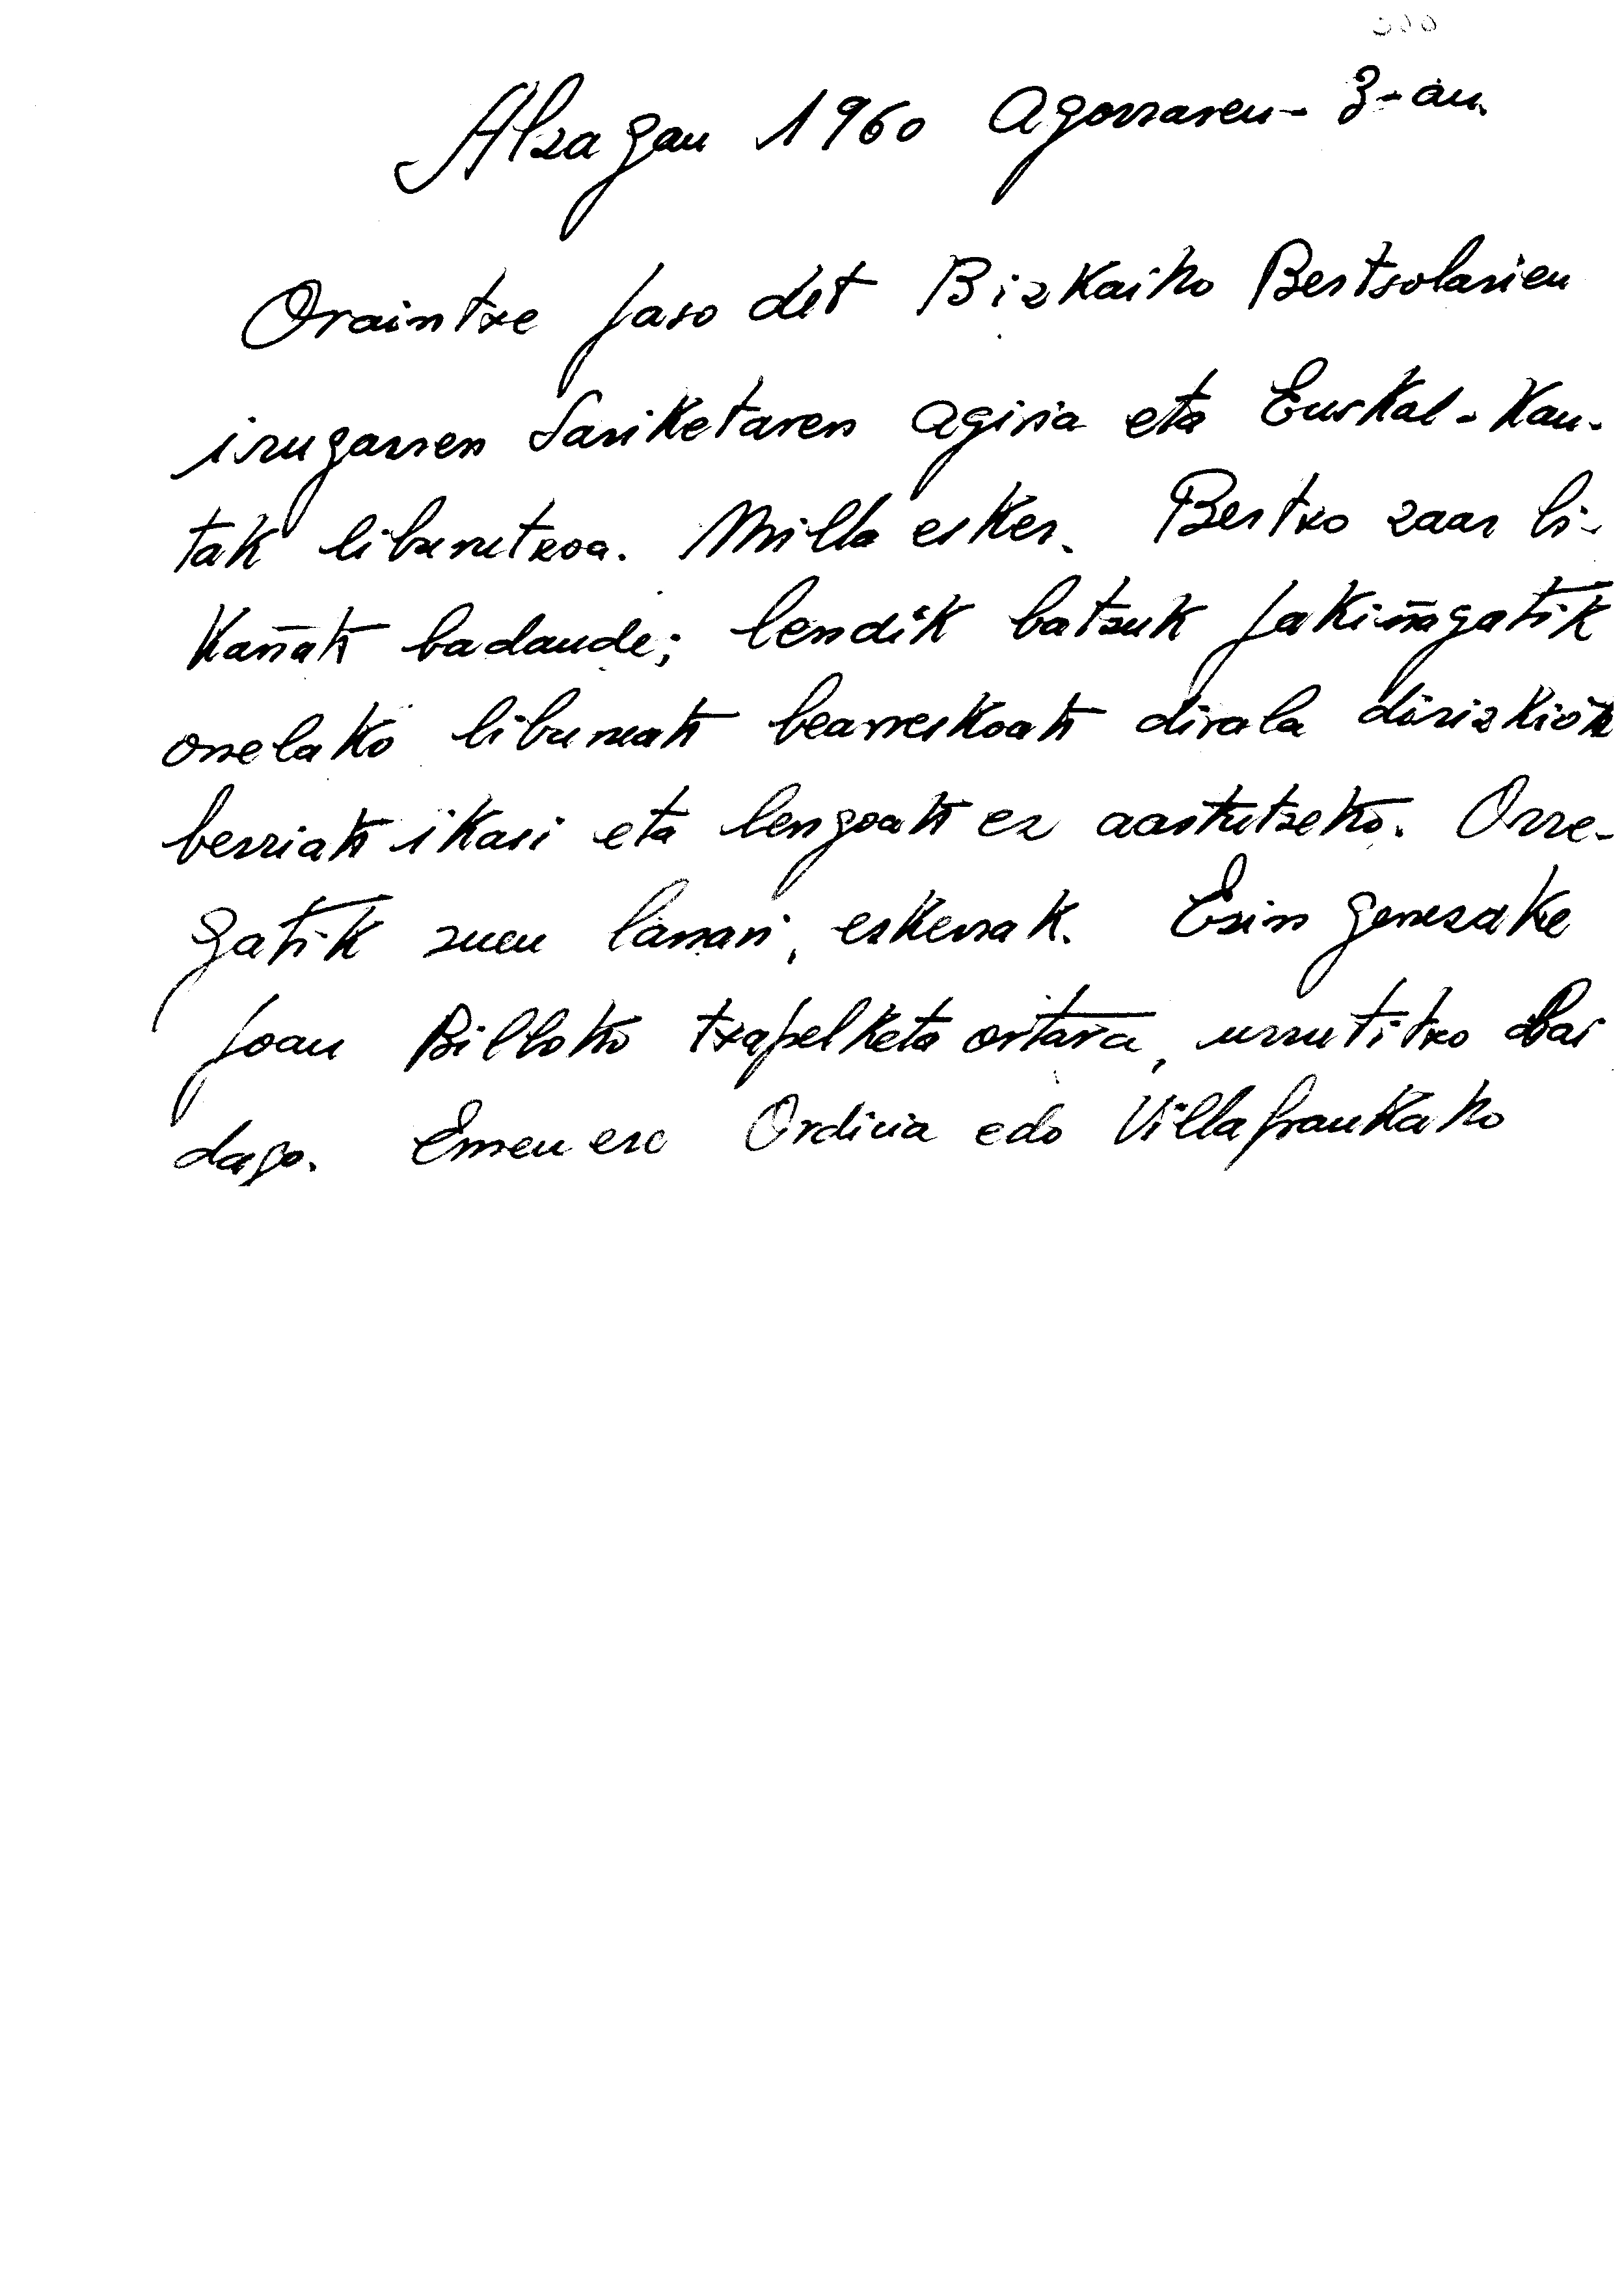 Alzagan 1960 Agorraren - 3-an.
Oraintxe jaso det Bizkaiko Bertsolarien
irugarren Sariketaren agiria eta Euskal-Kan-
tak liburutxoa. Milla esker. Bertso zaar li-
kañak badaude; lendik batzuk jakiñagatik
onelako liburuak bearreskoak dirala dirizkiok
berriak ikasi eta lengoak ez aaztutzeko. Orre-
gatik zuen lanari, eskerrak. Ezin genezake
joan Bilboko txapelketa ortara, urrutitxo bai
dago. Emen ere Ordicia edo Villafrankako